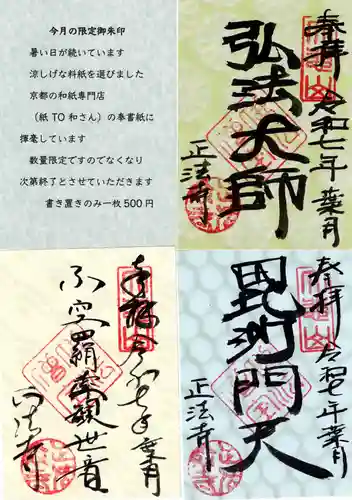 今月の限定御朱印
暑い日が続いています
涼しげな料紙を選びました
京都の和紙専門店
（紙TO和さん）の奉書紙に
揮毫しています
数量限定ですのでなくなり
次第終了とさせていただきます
書き置きのみ一枚500円
奉拝
令和七年葉月
弘法大師
正法寺
奉拝
令和七年葉月
不空羂索観世音
正法寺
奉拝
令和七年葉月
毘沙門天
正法寺